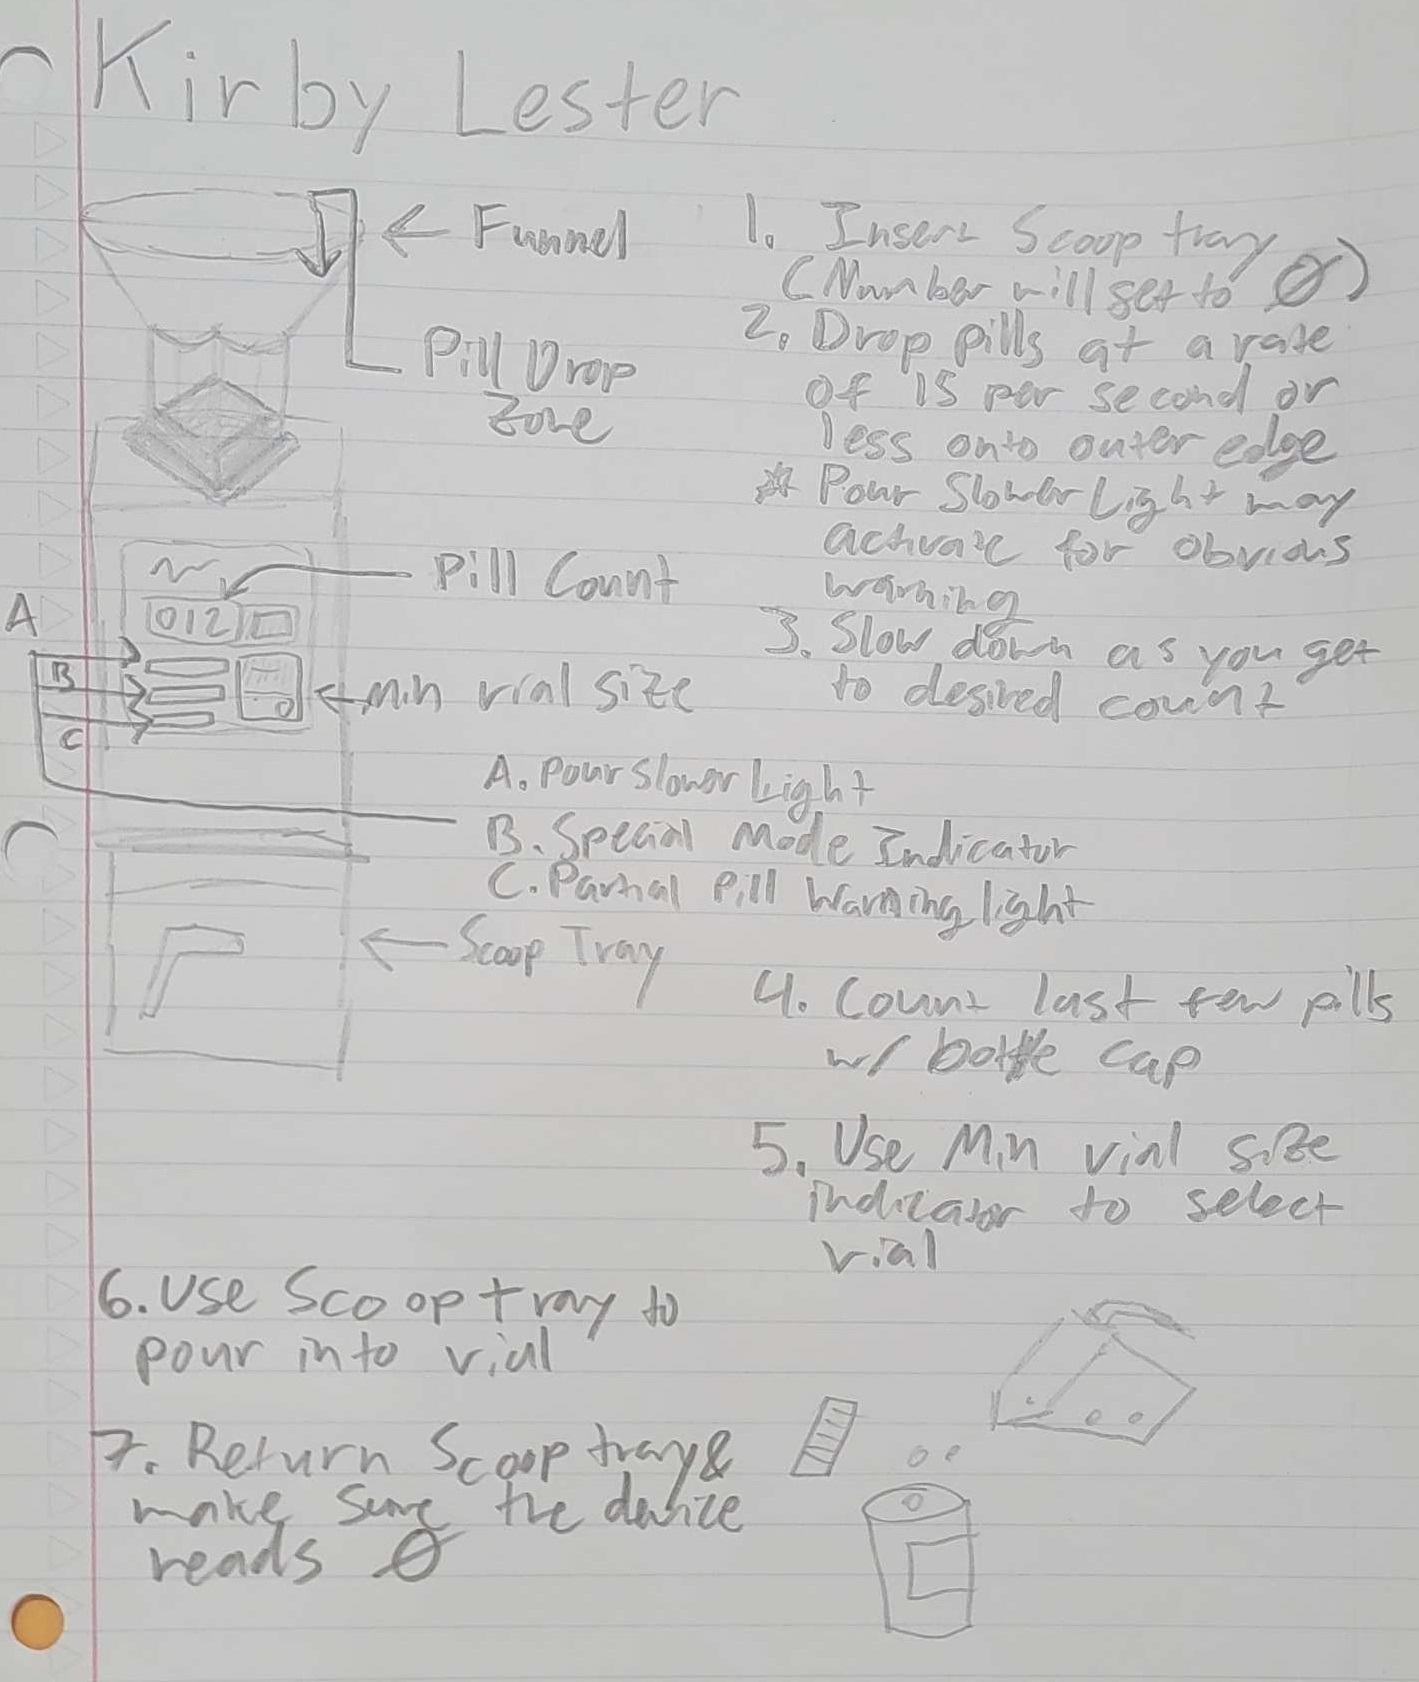 Kirby Lester
← Funnel
Pill Drop
Zone
Pill Count
012
A
B
C
← Min vial size
A. Pour Slower Light
B. Special Mode Indicator
C. Partial Pill Warning light
← Scoop Tray
1. Insert Scoop tray
(Number will get to Ø)
2. Drop pills at a rate
of 15 per second or
less onto outer edge
* Pour Slower Light may
activate for obvious
warning
3. Slow down as you get
to desired count
4. Count last few pills
w/ bottle cap
5. Use Min vial size
indicator to select
vial
6. Use Scoop tray to
pour into vial
7. Return Scoop tray &
make sure the device
reads Ø